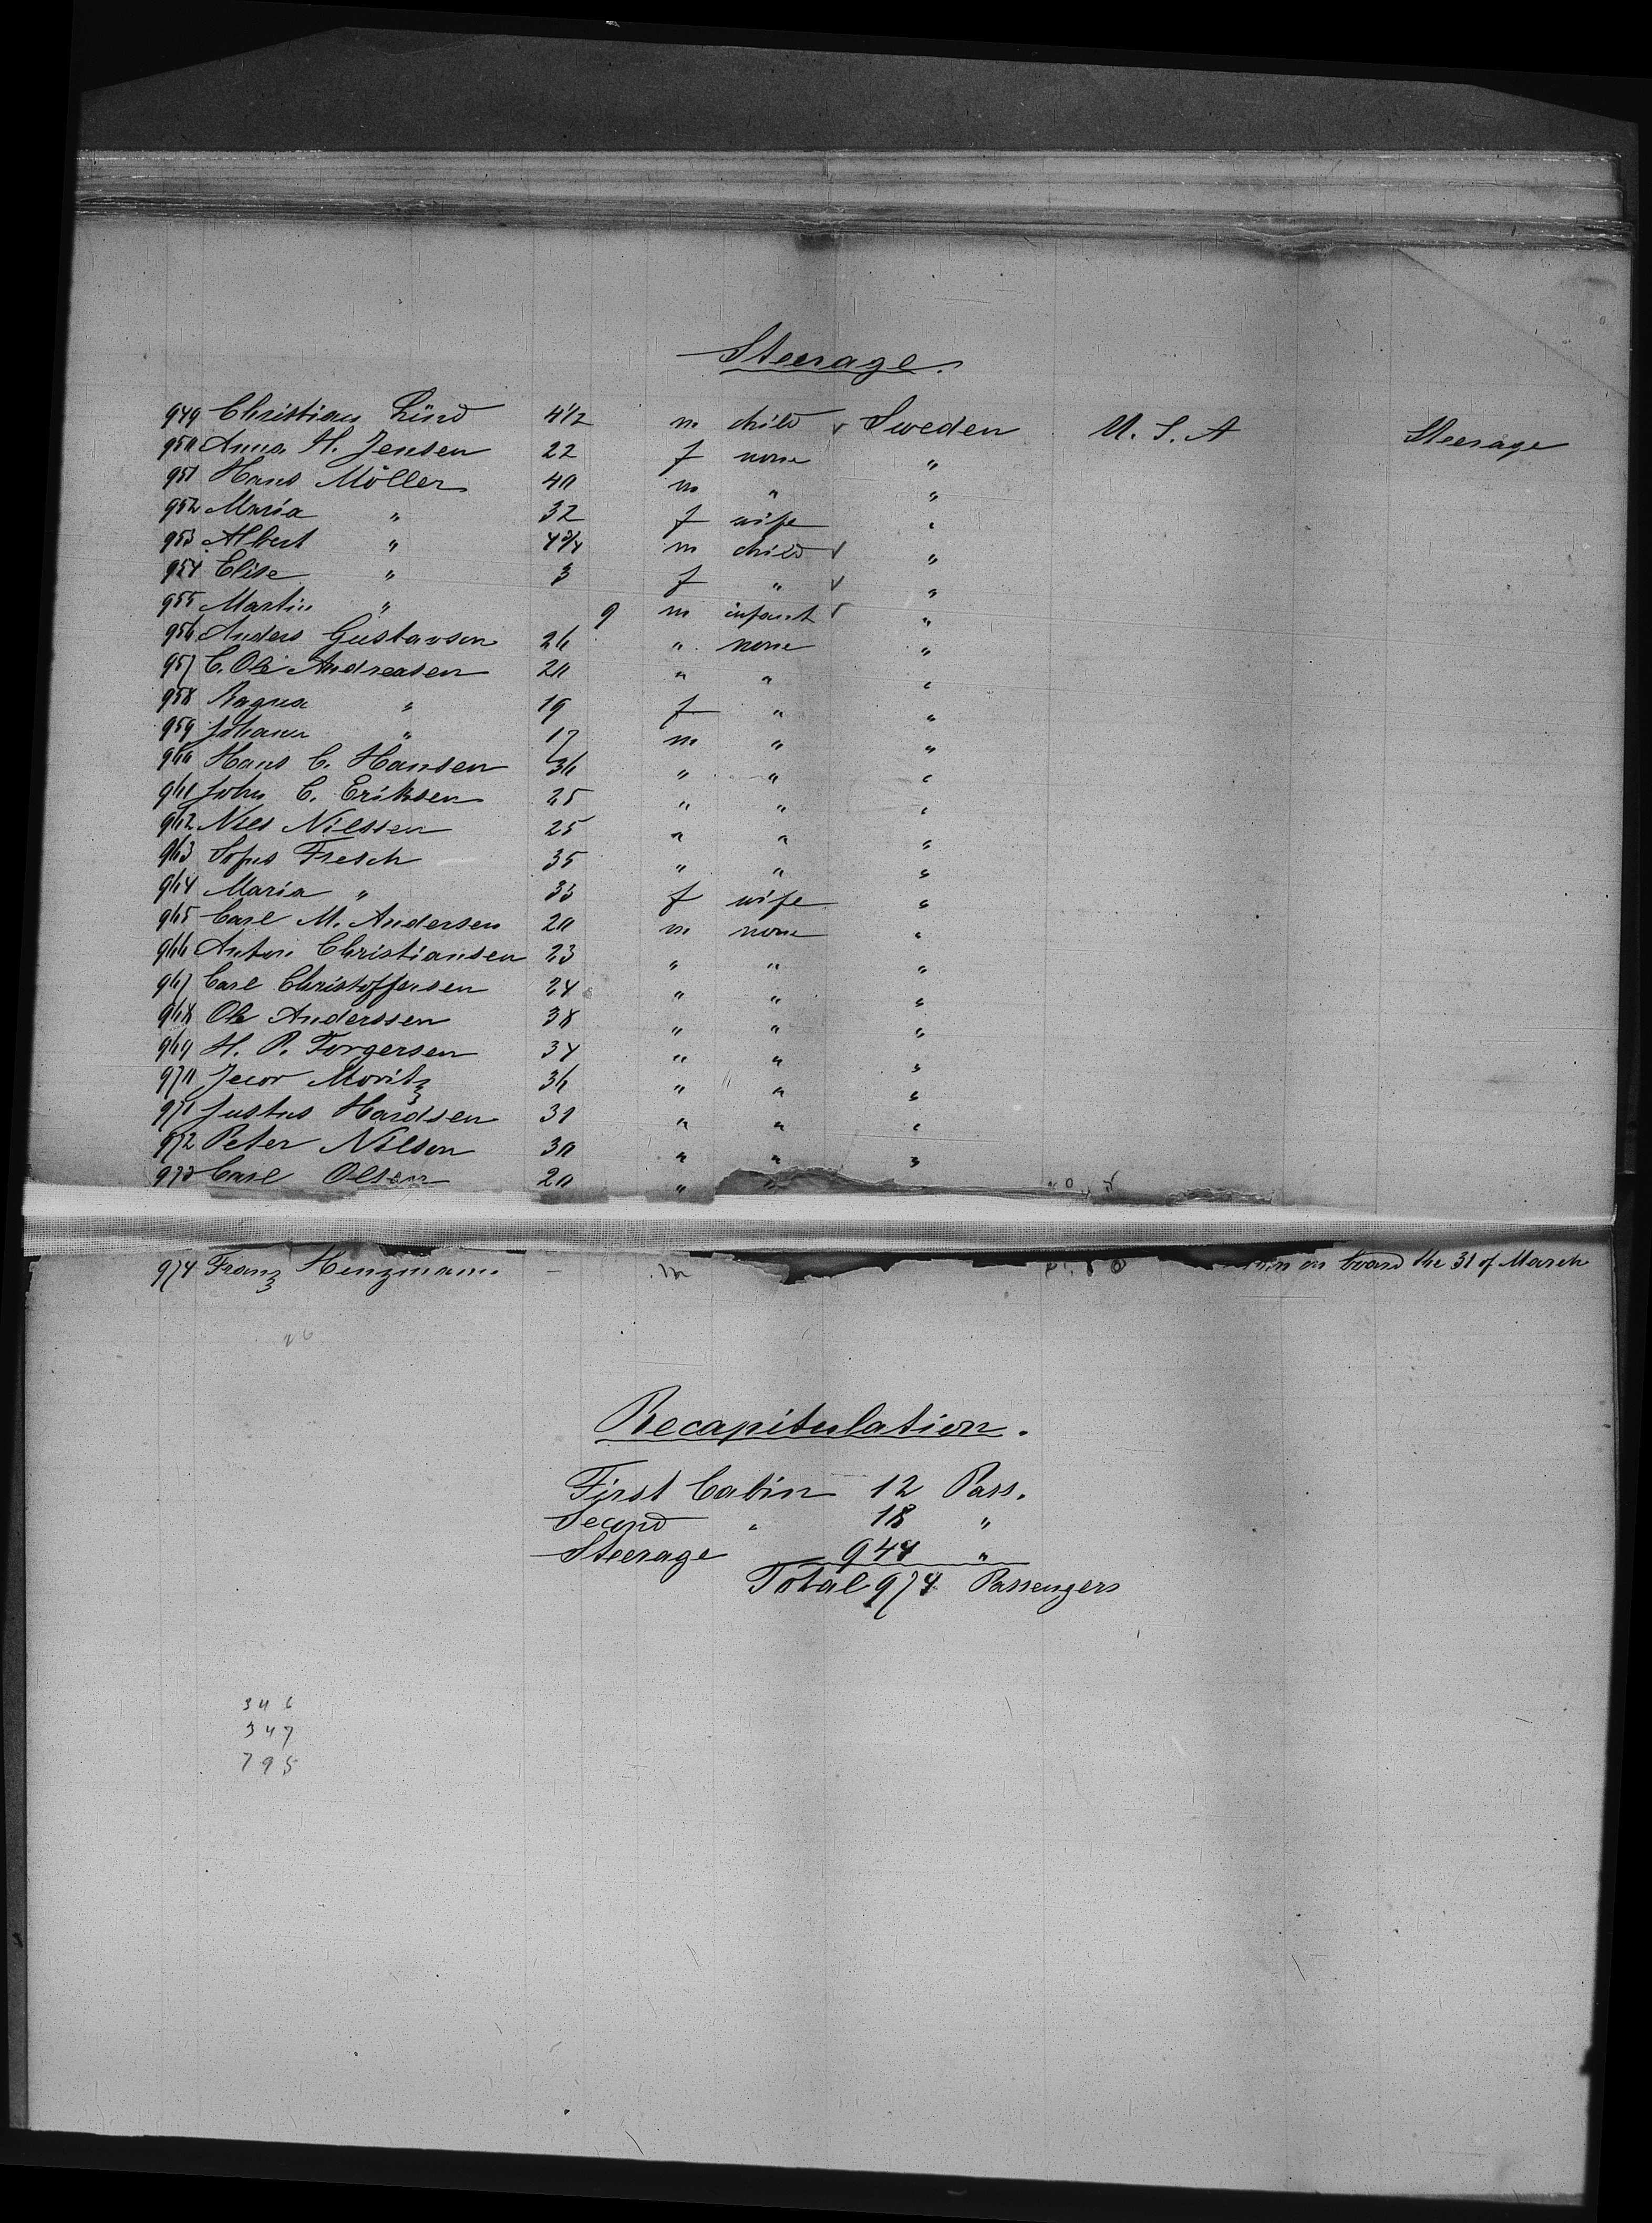 Steerage.
949 Christian Lünd 4 1/2 m child v Sweden U. S. A Steerage
950 Anna H. Jensen 22 f none "
951 Hans Möller 40 m " "
952 Maria " 32 f wife "
953 Albert " 4 3/4 m child v "
954 Elise " 3 f " v "
955 Martin " 9 m infant v "
956 Anders Gustavson 26 " none "
957 C. Ole Andreasen 20 " " "
958 Ragna " 19 f " "
959 Johann " 17 m " "
960 Hans C. Hansen 36 " " "
961 John C. Eriksen 25 " " "
962 Nils Nilssen 25 " " "
963 Sofus Fresch 35 " " "
964 Maria " 33 f wife "
965 Carl M. Andersen 20 m none "
966 Anton Christiansen 23 " " "
967 Carl Christoffersen 24 " " "
968 Ole Anderssen 38 " " "
969 H. P. Torgersen 34 " " "
970 Jecor Moritz 36 " " "
971 Justus Hardsen 31 " " "
972 Peter Nilson 30 " " "
973 Carl Olsen 20 " "
974 Franz Henzmann - m on board the 31 of March
26
Recapitulation.
First Cabin 12 Pass.
Second " 18 "
Steerage 944 "
Total 974 Passengers
346
347
795